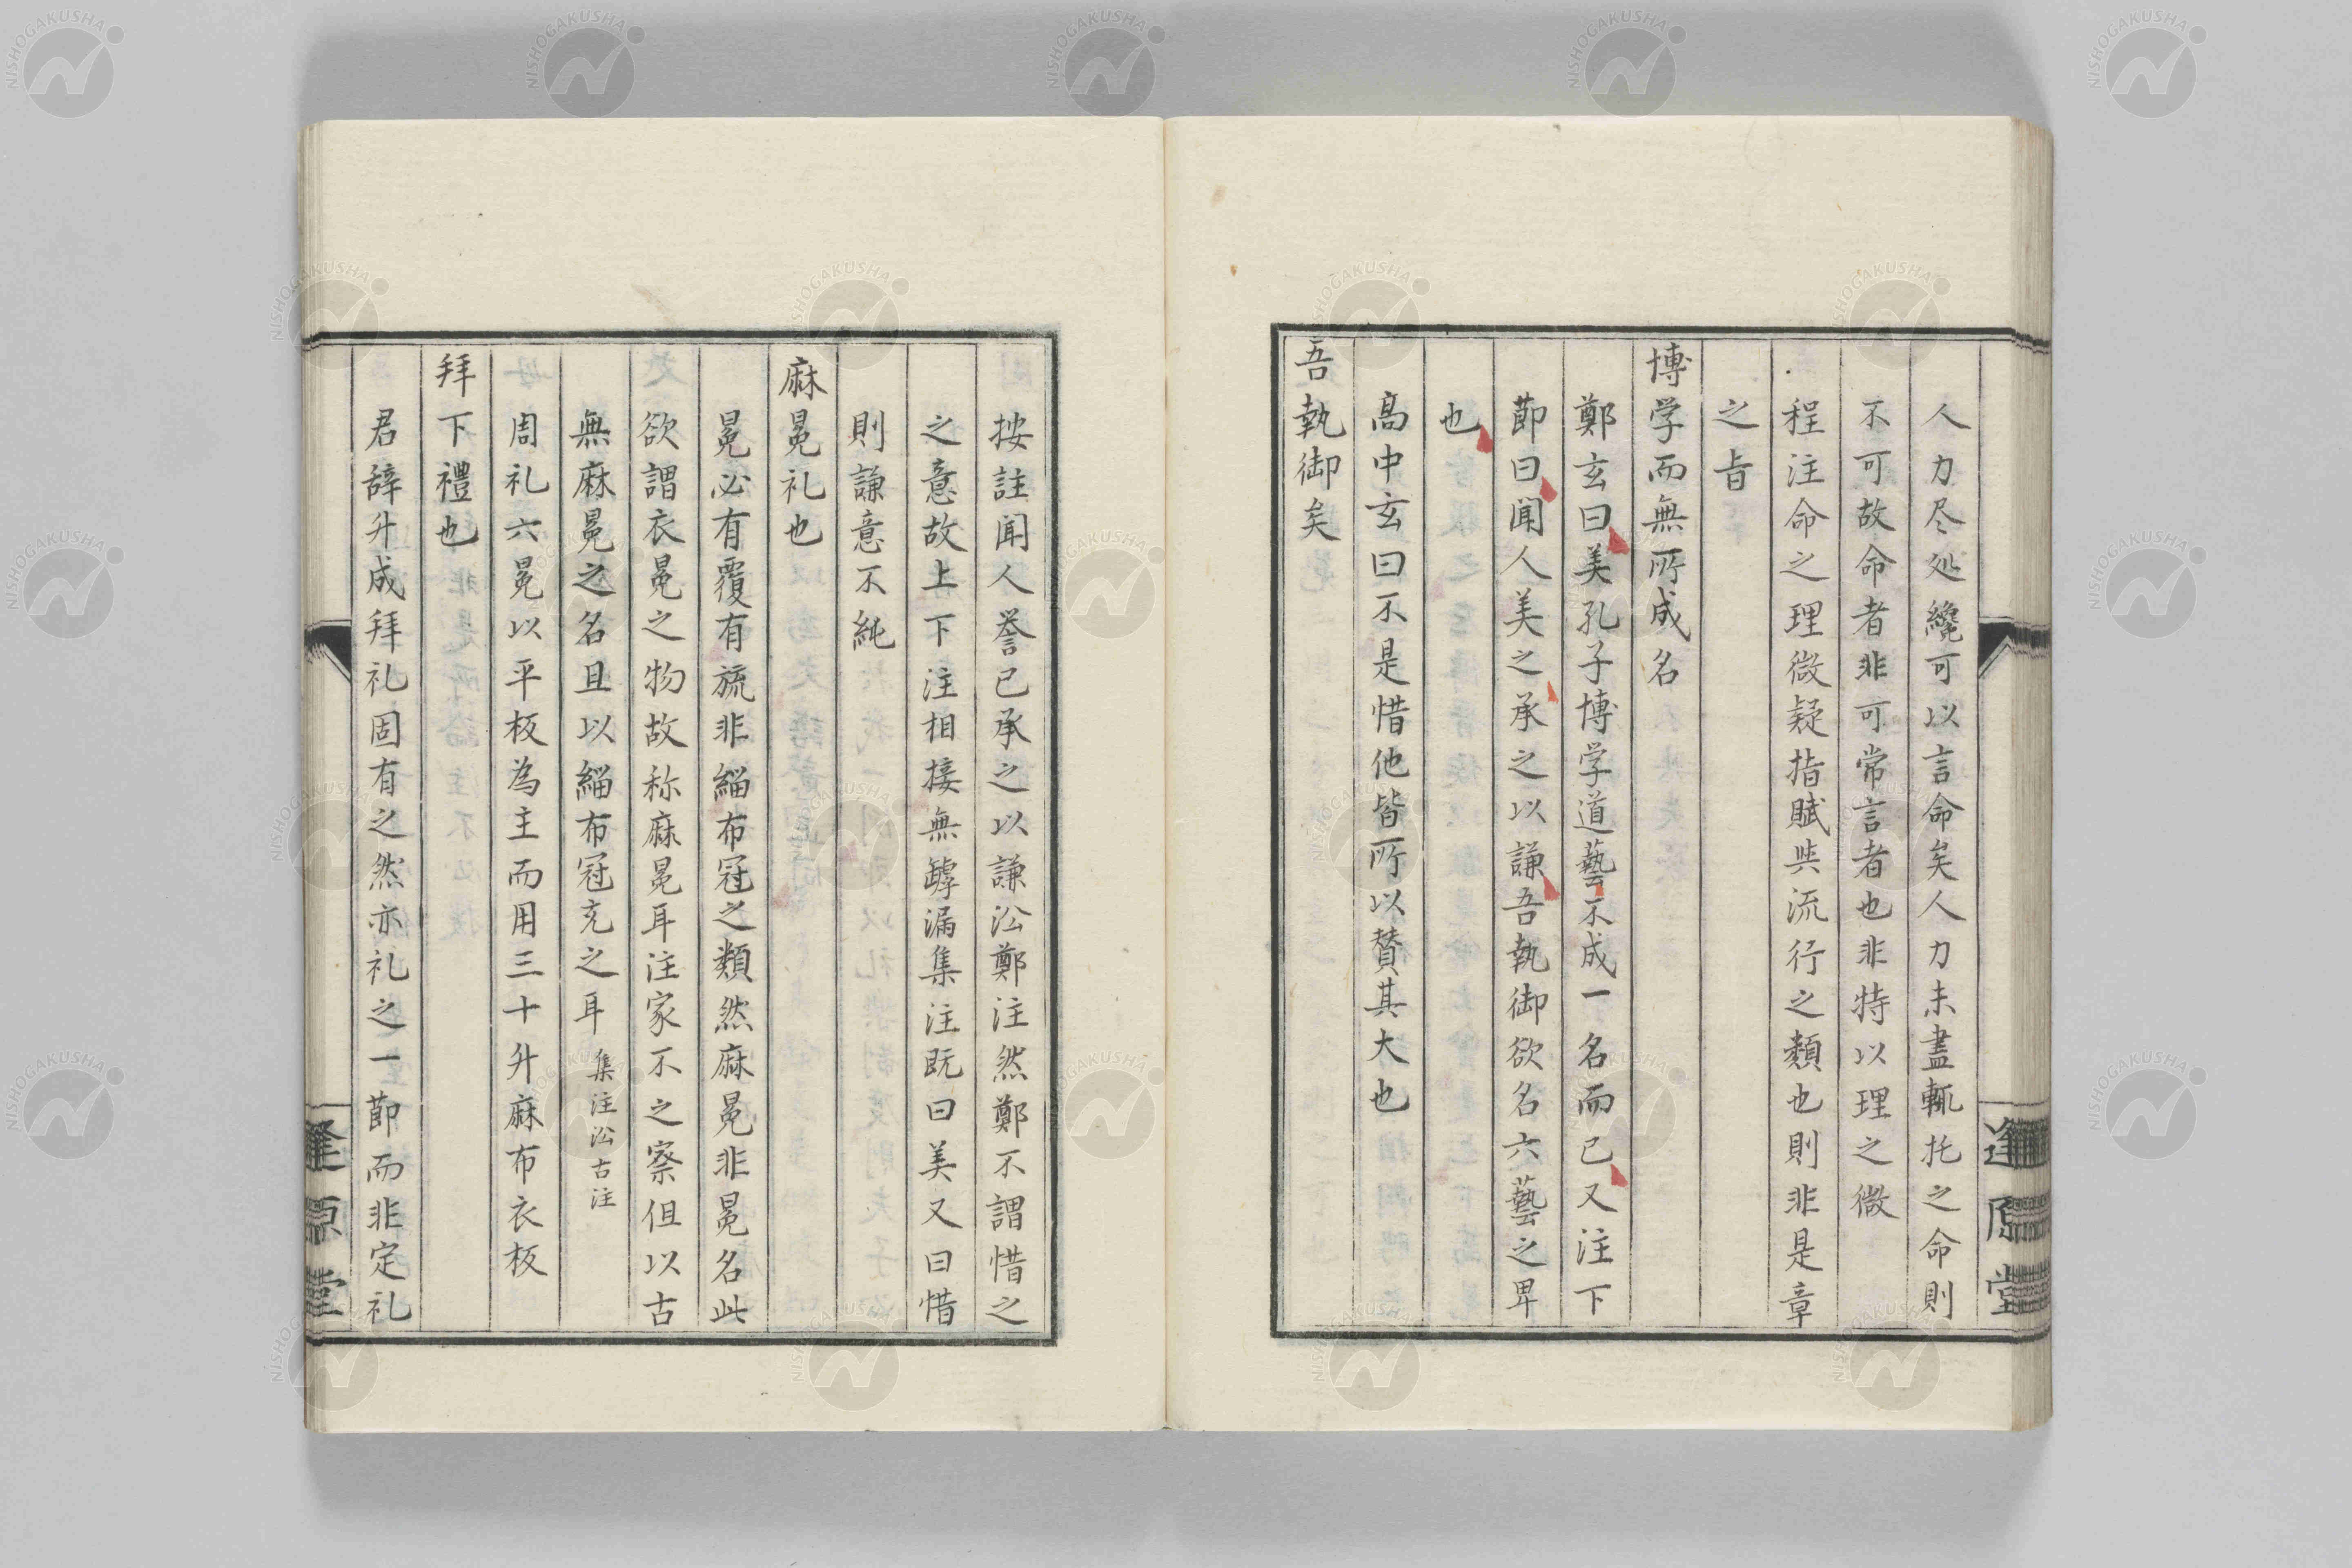 人力尽処纔可以言命矣人力未盡輒托之命則
不可故命者非可常言者也非特以理之微
程注命之理微疑指賦与流行之類也則非是章
之旨
博学而無所成名
鄭玄曰美孔子博学道藝不成一名而已又注下
節曰聞人美之承之以謙吾執御欲名六藝之卑
也
高中玄曰不是惜他皆所以賛其大也
吾執御矣
按註聞人誉已承之以謙沿鄭注然鄭不謂惜之
之意故上下注相接無罅漏集注既曰美又曰惜
則謙意不純
麻冕礼也
冕必有覆有旒非緇布冠之類然麻冕非冕名此
欲謂衣冕之物故称麻冕耳注家不之察但以古
無麻冕之名且以緇布冠充之耳 集注沿古注
周礼六冕以平板為主而用三十升麻布衣板
拜下禮也
君辞升成拜礼固有之然亦礼之一節而非定礼
逢原堂
逢原堂
NISHOGAKUSHA